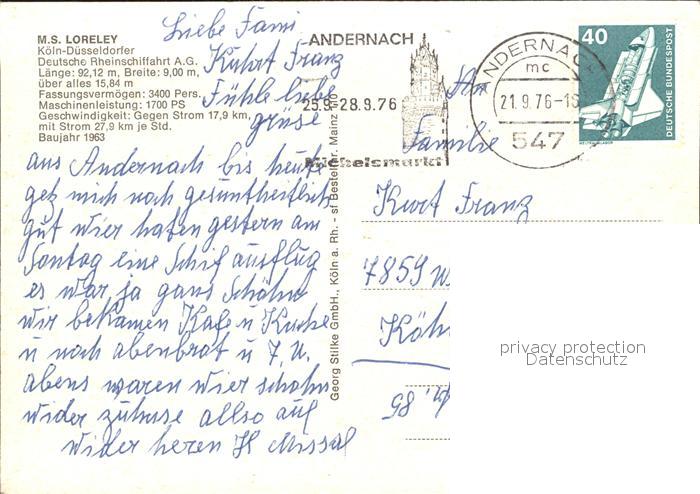 M.S. LORELEY
Köln-Düsseldorfer
Deutsche Rheinschiffahrt A.G.
Länge: 92,12 m, Breite: 9,00 m,
über alles 15,84 m
Fassungsvermögen: 3400 Pers.
Maschinenleistung: 1700 PS
Geschwindigkeit: Gegen Strom 17,9 km,
mit Strom 27,9 km je Std.
Baujahr 1963
Liebe Fami
Kuhrt Franz
Fühle liebe
grüse
aus Andernach bis heute
get mich noch gesuntheitlich
gut wier haten gestern am
Sontag eine Schif ausflug
es war ja gans Schöhn
wir bekamen Kafe u Kuche
u noch abenbrot u 7. U.
abens waren wier schohn
wider zuhuse allso auf
wider heren H Missal
Georg Stilke GmbH., Köln a. Rh. - sf Bestellnr. Mainz
ANDERNACH
25.9-28.9.76
Michelsmarkt
ANDERNACH
mc
21.9.76-18
547
40
DEUTSCHE BUNDESPOST
An
Familie
Kurt Franz
7859 W
Köh
85
privacy protection
Datenschutz